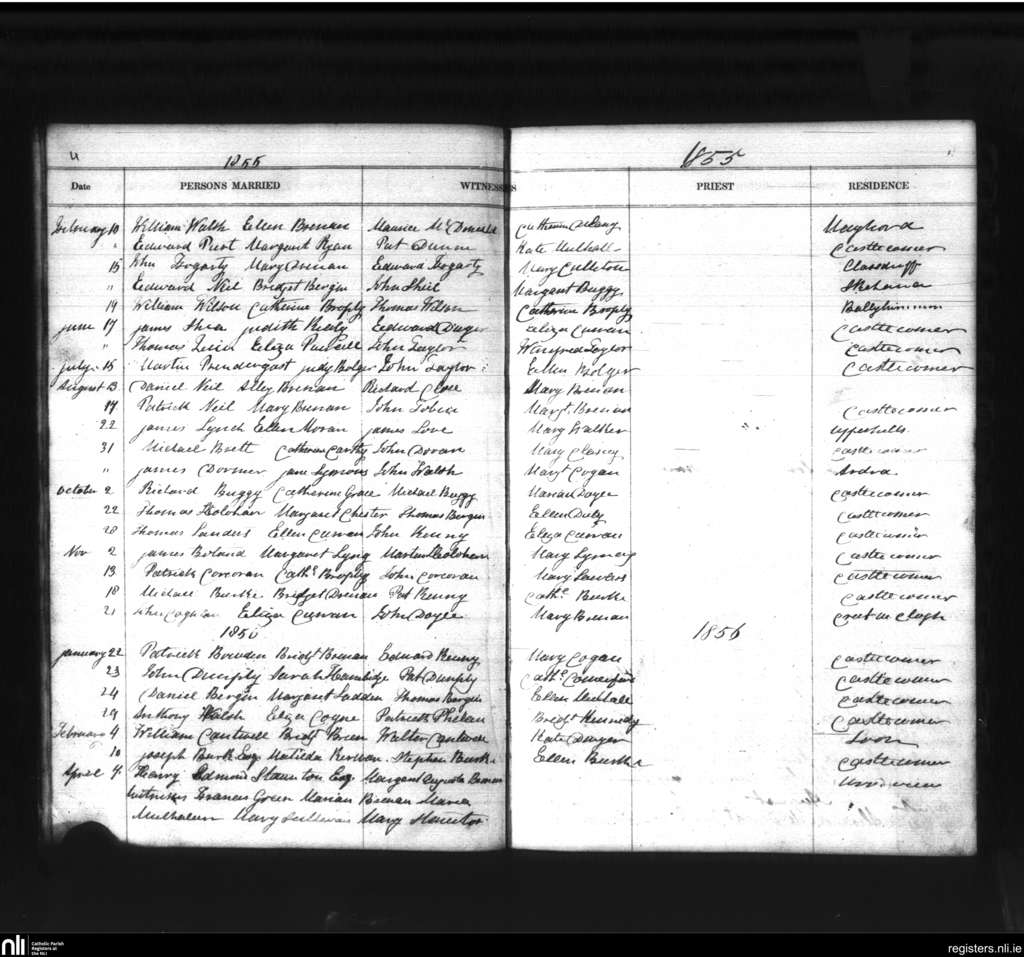 4 1855 1855
Date PERSONS MARRIED WITNESSES PRIEST RESIDENCE
February 10 William Walsh Ellen Brenan Maurice McDonald Catherine Delany
" Eedward Purt Margaret Ryan Pat Dunne Kate Mulhall Castlecomer
15 John Fogarty Mary Drenan Edward Fogarty Mary Culleton
" Eedward Neil Bridget Bergin John Shiel Margaret Buggy Skehana
14 William Wilson Catherine Brophy Thomas Wilson Catherine Brophy
June 17 James Shea Judith Realy Eedward Dwyer Eliza Curran Castlecomer
" Thomas Eeliza Purcell John Taylor Winefred Taylor Castlecomer
July 15 Martin Prendergast Judy Bolger John Taylor Eellen Bolger Castlecomer
August 13 Daniel Neil Alley Brenan Richard Close Mary Brenan
17 Patrick Neil Mary Brenan John Tobin Margt Brenan Castlecomer
22 James Lynch Ellen Moran James Love Mary Walker
31 Michael Brett Catherine Carthy John Doran Mary Clancy Castlecomer
" James Dormer Jane Symons John Walsh Margt Cogan Ardra
October 2 Richard Buggy Catherine Grace Michael Buggy Marian Doyle Castlecomer
22 Thomas Holohan Margaret Chester Thomas Bergin Eellen Duly Castlecomer
28 Thomas Landers Ellen Curran John Kenny Eliza Curran Castlecomer
Nov 2 James Boland Margaret Lyng Martin Holohan Mary Castlecomer
13 Patrick Corcoran Cathe Brophy John Corcoran Mary Lawless Castlecomer
18 Michael Burke Bridget Drenan Pat Kenny Cathe Burke Castlecomer
21 John Coghlan Eliza Curran John Doyle Mary Brenan
1856 1856
January 22 Patrick Bowden Bridgt Brenan Edward Kenny Mary Cogan Castlecomer
23 John Dunphy Sarah Hambidge Pat Dunphy Cathe Comerford Castlecomer
24 Daniel Bergin Margaret Ladden Thomas Bergin Eellen Mulhall Castlecomer
29 Anthony Walsh Eliza Coyne Patrick Phelan Bridgt Kennedy Castlecomer
February 4 William Cantwell Bridgt Breen Walter Cantwell Kate Dwyer Loon
10 Joseph Burke Esq Matilda Kerwan Stephen Burke Ellen Burke Castlecomer
April 4 Harry Edmond Staunton Esq Margaret Augusta Brenan
Witnesses Frances Green Marian Brenan Maria
Mulhallum Mary Sullivan Mary Staunton
nli Catholic Parish
Registers at
the NLI
registers.nli.ie